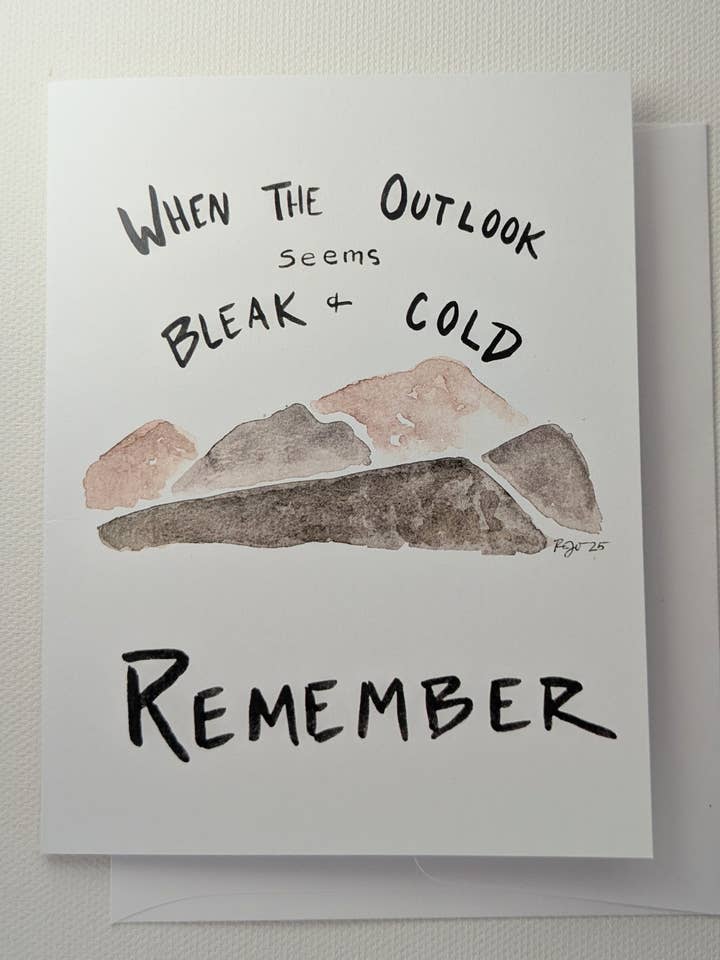 WHEN THE OUTLOOK
seems
BLEAK & COLD
REMEMBER